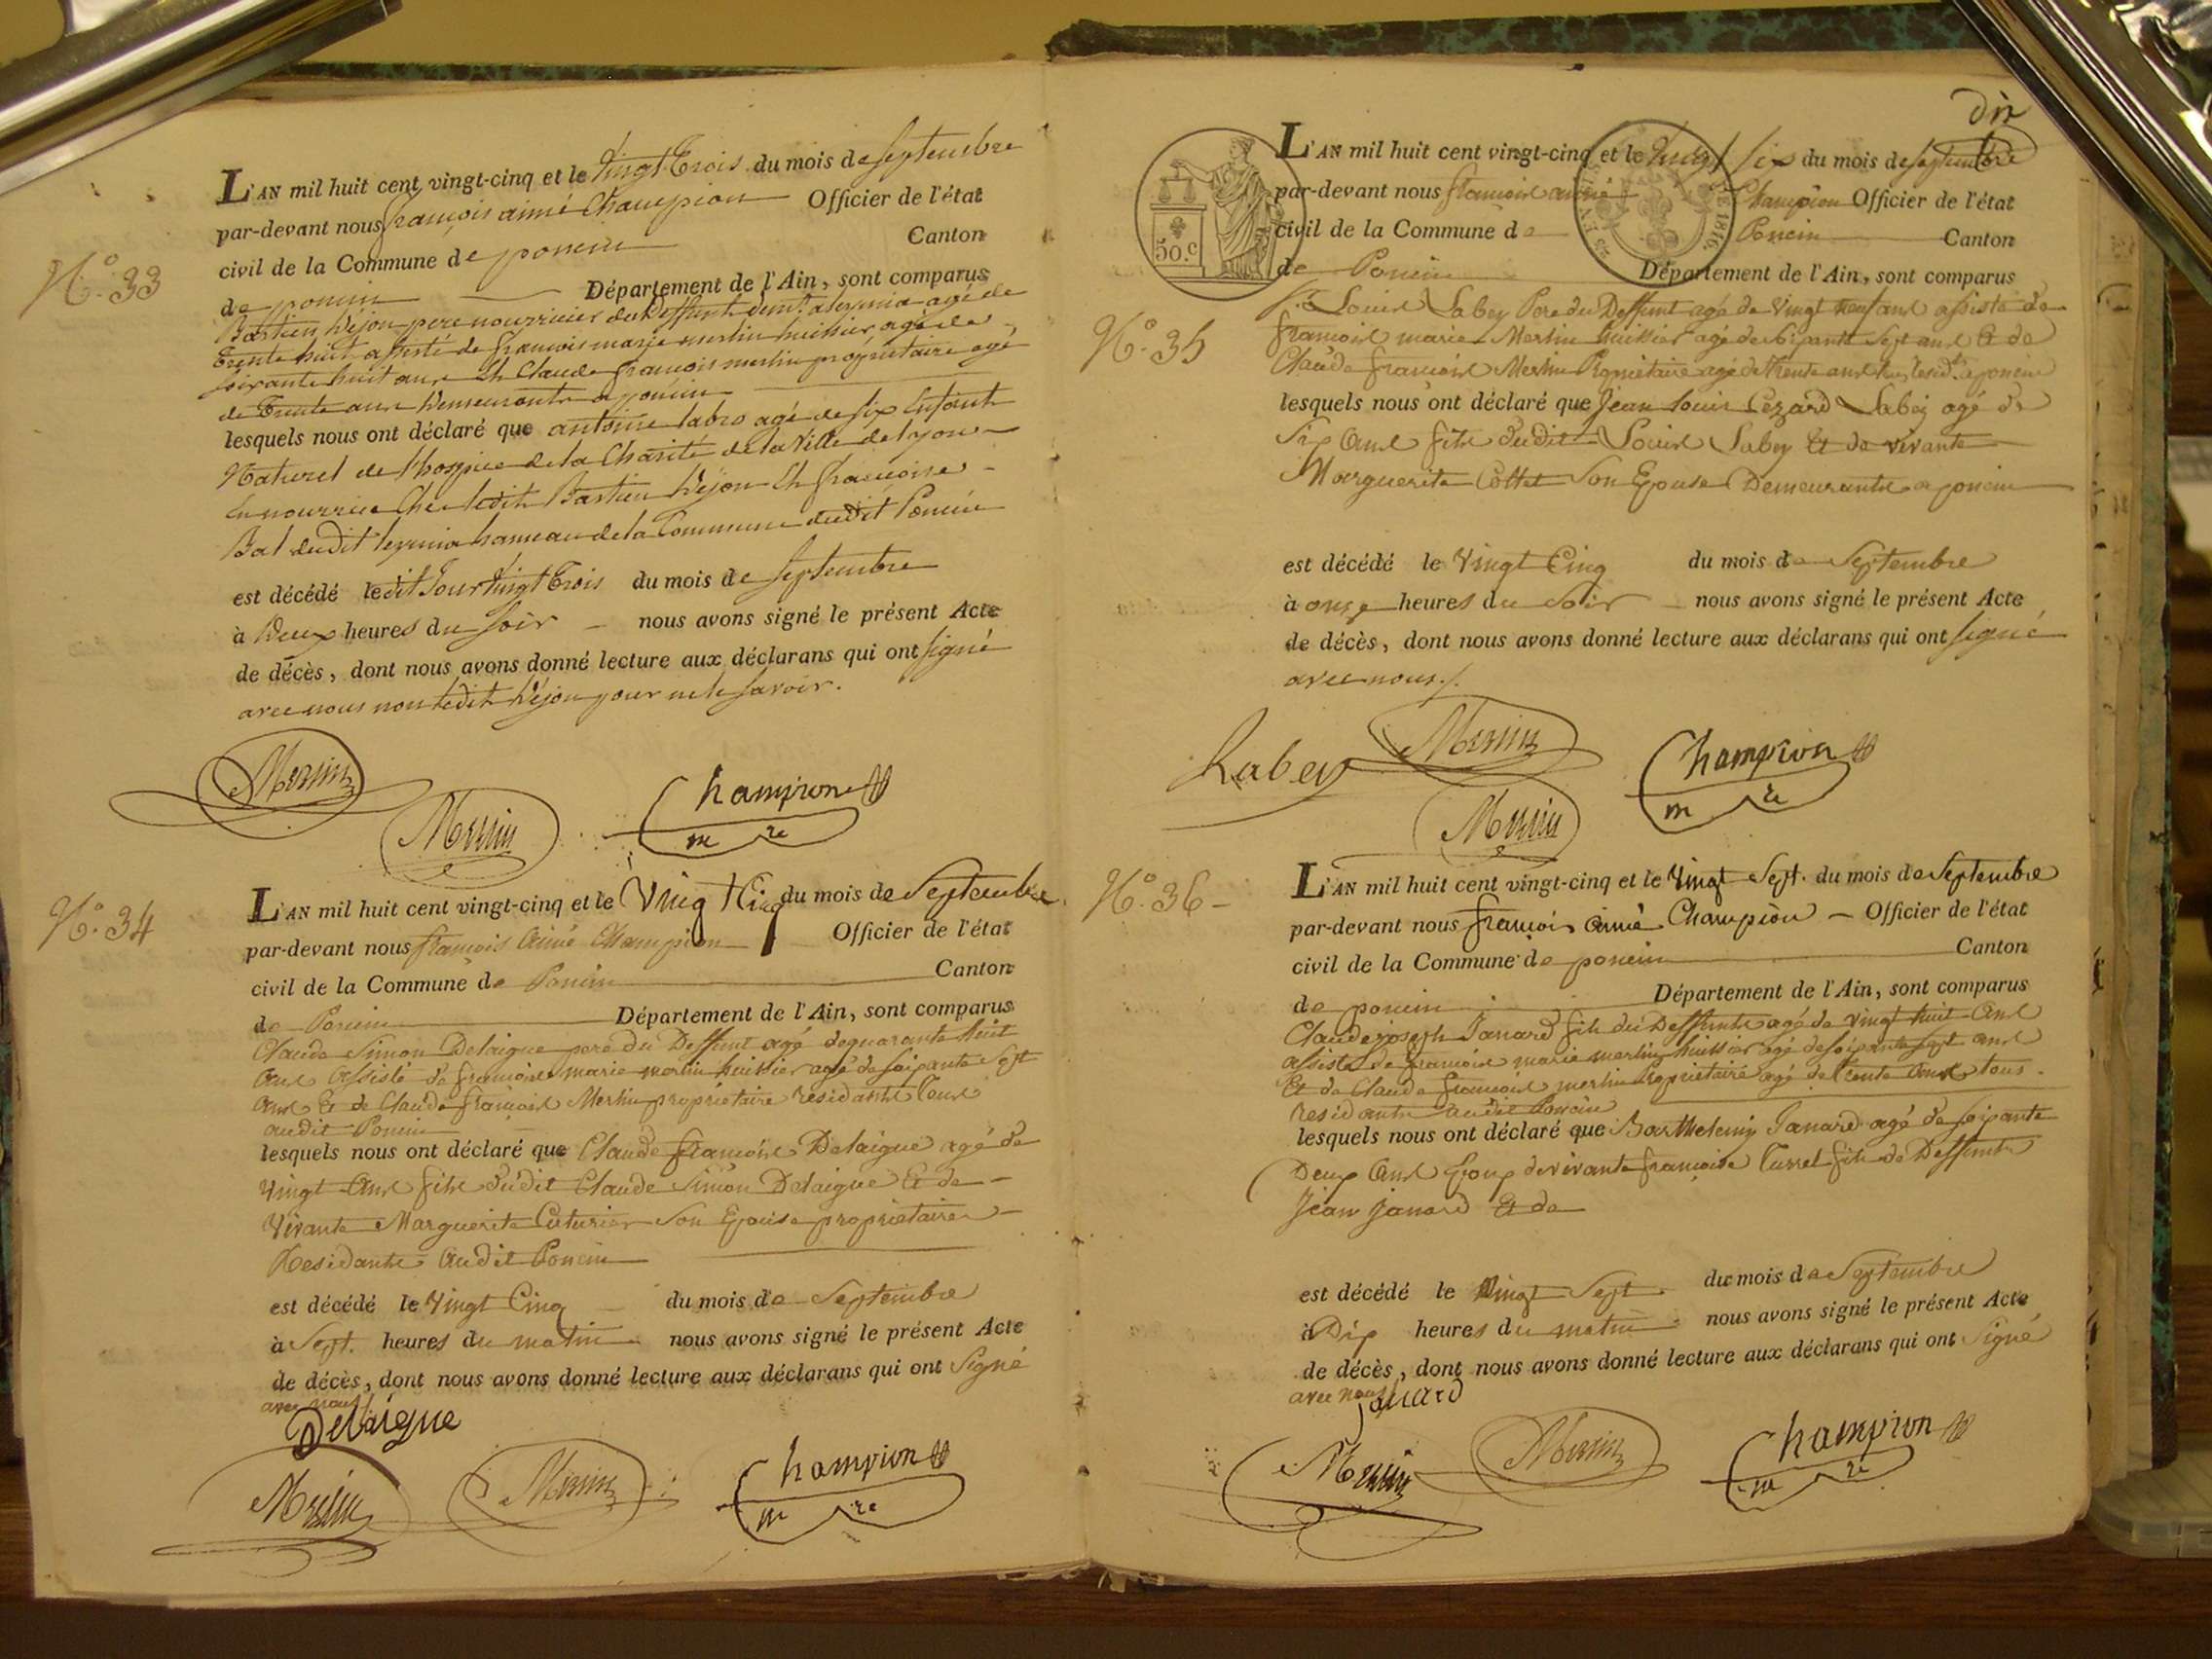 N.° 33
L'AN mil huit cent vingt-cinq et le Vingt Trois du mois de Septembre
par-devant nous françois aimé Champion Officier de l'état
civil de la Commune de poncin Canton
de poncin Département de l'Ain, sont comparus
Bastien Déjon pere nourricier du Deffunt agé de
trente huit assisté de francois marie merlin huissier agé de
soixante huit ans Et Claude francois merlin propriétaire agé
de Trente ans Demeurants a poncin
lesquels nous ont déclaré que antoine labro agé de six Enfant
Naturel de l'hospice de la Charité de la Ville de lyon
En nourrice Chez ledit Bastien Dejon Et francoise
Bal dudit hameau de la Commune dudit Poncin
est décédé ledit Jour Vingt Trois du mois de Septembre
à Deux heures du Soir nous avons signé le présent Acte
de décès, dont nous avons donné lecture aux déclarans qui ont Signé
avec nous non ledit Dejon pour ne le savoir.
Merlin
Merlin
Champion
m re
N.° 34
L'AN mil huit cent vingt-cinq et le Vingt Cinq du mois de Septembre
par-devant nous françois Aimé Champion Officier de l'état
civil de la Commune de Poncin Canton
de Poncin Département de l'Ain, sont comparus
Claude Simon Delaigue pere du Deffunt agé de quarante huit
ans assisté de francois marie merlin huissier agé de soixante Sept
ans Et de Claude francois Merlin propriétaire résidants Tous
audit Poncin
lesquels nous ont déclaré que Claude francois Delaigue agé de
Vingt Ans fils dudit Claude Simon Delaigue Et de
Vivante Marguerite Cuturier Son Epouse propriétaires
Residants Audit Poncin
est décédé le Vingt Cinq du mois de Septembre
à Sept. heures du matin nous avons signé le présent Acte
de décès, dont nous avons donné lecture aux déclarans qui ont Signé
avec nous
Delaigue
Merlin
Merlin
Champion
m re
dix
50.C
1816.
N.° 35
L'AN mil huit cent vingt-cinq et le Vingt Six du mois de Septembre
par-devant nous francois aimé Champion Officier de l'état
civil de la Commune de Poncin Canton
de Poncin Département de l'Ain, sont comparus
Louis Labey Pere du Deffunt agé de Vingt neuf ans assisté de
francois marie Merlin huissier agé de soixante Sept ans Et de
Claude francois Merlin Propriétaire agé de trente ans tous resid.ts a poncin
lesquels nous ont déclaré que Jean Louis Cezard Labey agé de
Six Ans fils dudit Louis Labey Et de vivante
Marguerite Cottet Son Epouse Demeurants a poncin
est décédé le Vingt Cinq du mois de Septembre
à onze heures du Soir nous avons signé le présent Acte
de décès, dont nous avons donné lecture aux déclarans qui ont Signé
avec nous./.
Labey
Merlin
Merlin
Champion
m re
N.° 36
L'AN mil huit cent vingt-cinq et le Vingt Sept. du mois de Septembre
par-devant nous francois aimé Champion Officier de l'état
civil de la Commune de poncin Canton
de poncin Département de l'Ain, sont comparus
Claude joseph Janard fils du Deffunt agé de vingt huit Ans
assisté de francois marie merlin huissier agé de soixante sept ans
Et de Claude francois merlin Propriétaire agé de trente Ans tous
residants audit Poncin
lesquels nous ont déclaré que Barthelemy Janard agé de soixante
Deux Ans Epoux de vivante francoise Turrel fils de Deffunts
Jean janard Et de
est décédé le Vingt Sept du mois de Septembre
à Dix heures du matin nous avons signé le présent Acte
de décès, dont nous avons donné lecture aux déclarans qui ont Signé
avec nous
Janard
Merlin
Merlin
Champion
m re